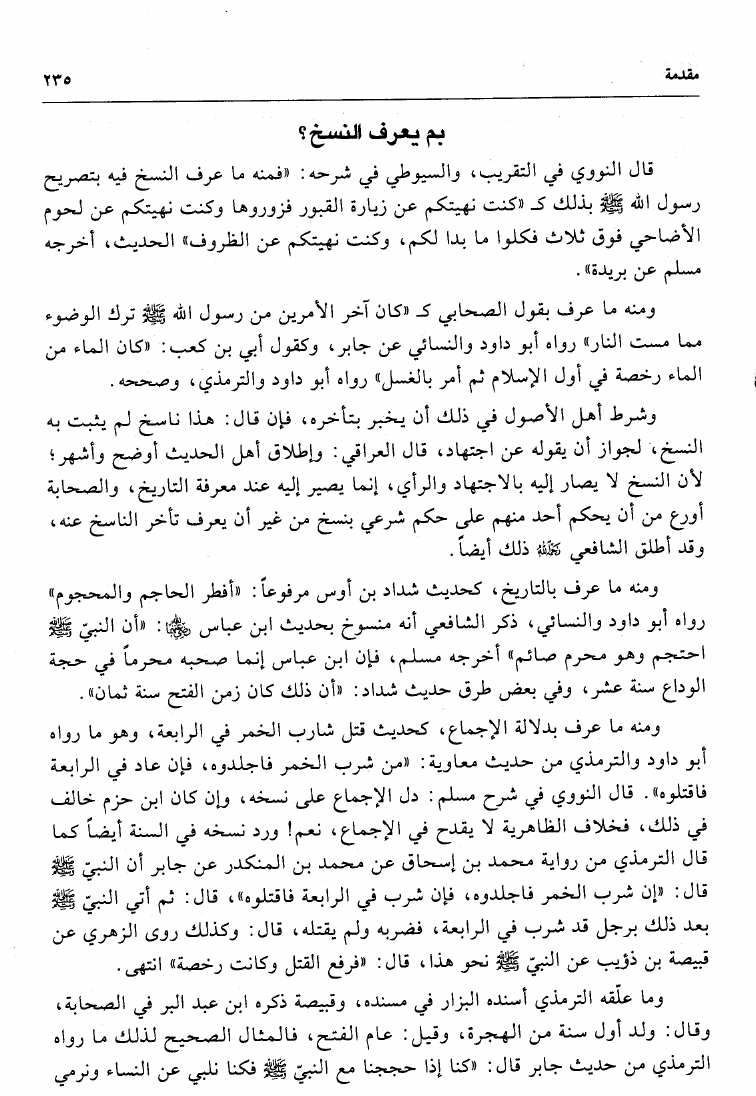 مقدمة ٢٣٥
بم يعرف النسخ؟
قال النووي في التقريب، والسيوطي في شرحه: «فمنه ما عرف النسخ فيه بتصريح
رسول الله ﷺ بذلك كـ «كنت نهيتكم عن زيارة القبور فزوروها وكنت نهيتكم عن لحوم
الأضاحي فوق ثلاث فكلوا ما بدا لكم، وكنت نهيتكم عن الظروف» الحديث، أخرجه
مسلم عن بريدة».
ومنه ما عرف بقول الصحابي كـ «كان آخر الأمرين من رسول الله ﷺ ترك الوضوء
مما مست النار» رواه أبو داود والنسائي عن جابر، وكقول أبي بن كعب: «كان الماء من
الماء رخصة في أول الإسلام ثم أمر بالغسل» رواه أبو داود والترمذي، وصححه.
وشرط أهل الأصول في ذلك أن يخبر بتأخره، فإن قال: هذا ناسخ لم يثبت به
النسخ، لجواز أن يقوله عن اجتهاد، قال العراقي: وإطلاق أهل الحديث أوضح وأشهر؛
لأن النسخ لا يصار إليه بالاجتهاد والرأي، إنما يصير إليه عند معرفة التاريخ، والصحابة
أورع من أن يحكم أحد منهم على حكم شرعي بنسخ من غير أن يعرف تأخر الناسخ عنه،
وقد أطلق الشافعي رحمه الله ذلك أيضاً.
ومنه ما عرف بالتاريخ، كحديث شداد بن أوس مرفوعاً: «أفطر الحاجم والمحجوم»
رواه أبو داود والنسائي، ذكر الشافعي أنه منسوخ بحديث ابن عباس رضي الله عنهما: «أن النبيّ ﷺ
احتجم وهو محرم صائم» أخرجه مسلم، فإن ابن عباس إنما صحبه محرماً في حجة
الوداع سنة عشر، وفي بعض طرق حديث شداد: «أن ذلك كان زمن الفتح سنة ثمان».
ومنه ما عرف بدلالة الإجماع، كحديث قتل شارب الخمر في الرابعة، وهو ما رواه
أبو داود والترمذي من حديث معاوية: «من شرب الخمر فاجلدوه، فإن عاد في الرابعة
فاقتلوه». قال النووي في شرح مسلم: دل الإجماع على نسخه، وإن كان ابن حزم خالف
في ذلك، فخلاف الظاهرية لا يقدح في الإجماع، نعم! ورد نسخه في السنة أيضاً كما
قال الترمذي من رواية محمد بن إسحاق عن محمد بن المنكدر عن جابر أن النبيّ ﷺ
قال: «إن شرب الخمر فاجلدوه، فإن شرب في الرابعة فاقتلوه»، قال: ثم أتي النبيّ ﷺ
بعد ذلك برجل قد شرب في الرابعة، فضربه ولم يقتله، قال: وكذلك روى الزهري عن
قبيصة بن ذؤيب عن النبيّ ﷺ نحو هذا، قال: «فرفع القتل وكانت رخصة» انتهى.
وما علّقه الترمذي أسنده البزار في مسنده، وقبيصة ذكره ابن عبد البر في الصحابة،
وقال: ولد أول سنة من الهجرة، وقيل: عام الفتح، فالمثال الصحيح لذلك ما رواه
الترمذي من حديث جابر قال: «كنا إذا حججنا مع النبيّ ﷺ فكنا نلبي عن النساء ونرمي